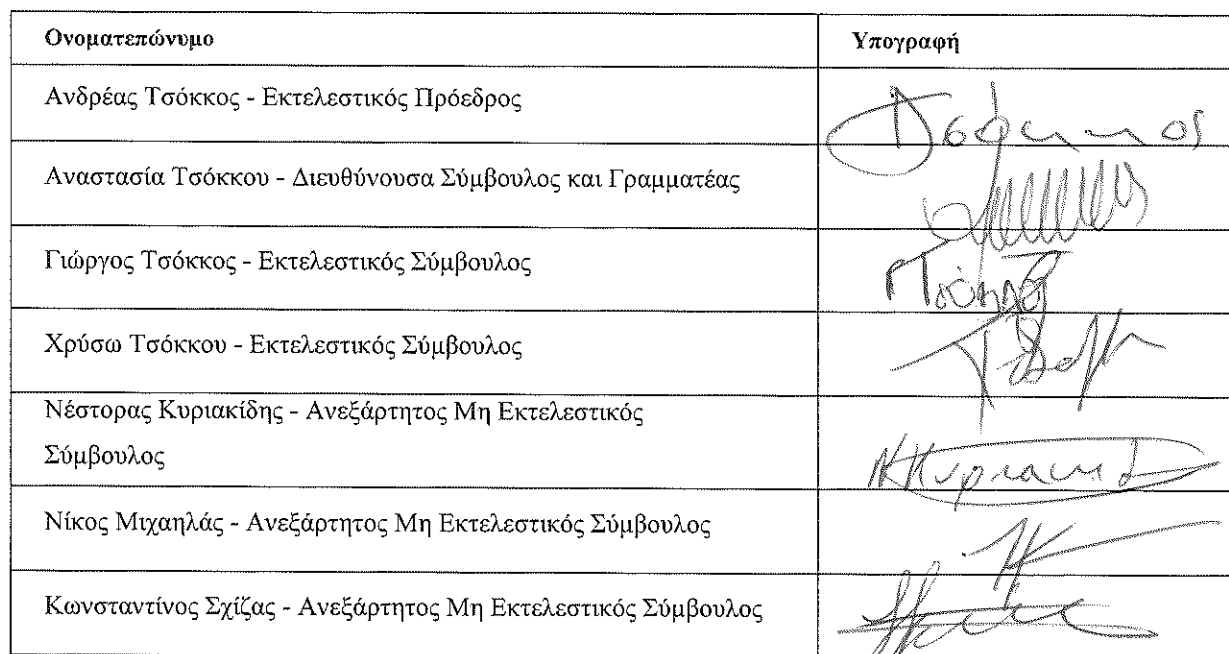 Ονοματεπώνυμο Υπογραφή
Ανδρέας Τσόκκος - Εκτελεστικός Πρόεδρος
Αναστασία Τσόκκου - Διευθύνουσα Σύμβουλος και Γραμματέας
Γιώργος Τσόκκος - Εκτελεστικός Σύμβουλος
Χρύσω Τσόκκου - Εκτελεστικός Σύμβουλος
Νέστορας Κυριακίδης - Ανεξάρτητος Μη Εκτελεστικός
Σύμβουλος
Νίκος Μιχαηλάς - Ανεξάρτητος Μη Εκτελεστικός Σύμβουλος
Κωνσταντίνος Σχίζας - Ανεξάρτητος Μη Εκτελεστικός Σύμβουλος